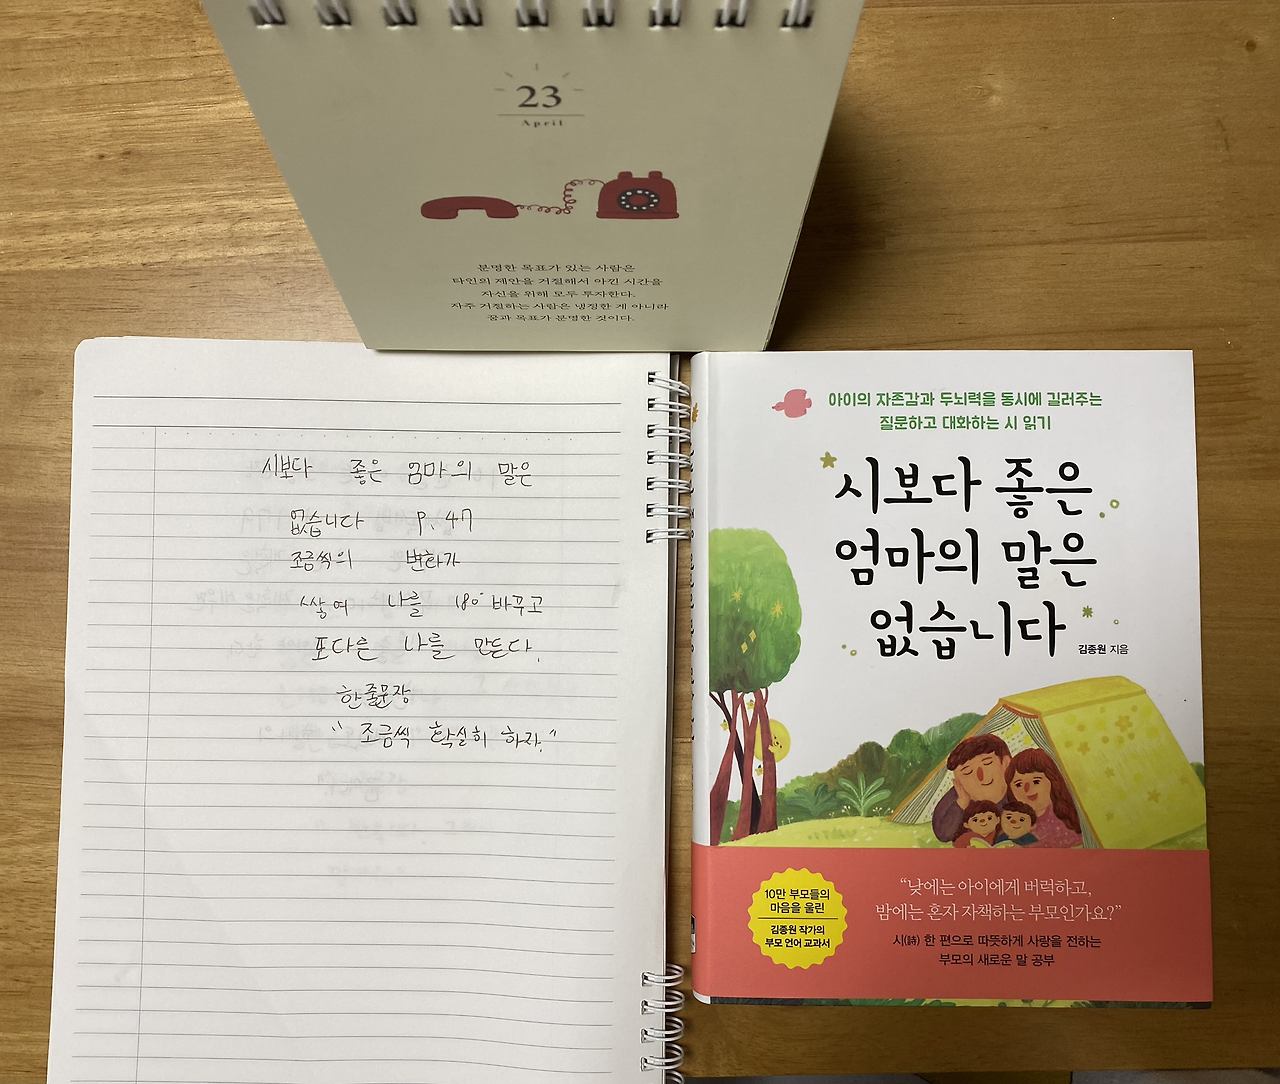 23
April
분명한 목표가 있는 사람은
타인의 제안을 거절해서 아낀 시간을
자신을 위해 모두 투자한다.
자주 거절하는 사람은 냉정한 게 아니라
꿈과 목표가 분명한 것이다.
시보다 좋은 엄마의 말은
없습니다 P. 47
조금씩의 변화가
쌓여 나를 180° 바꾸고
또다른 나를 만든다.
한줄문장
" 조금씩 확실히 하자."
아이의 자존감과 두뇌력을 동시에 길러주는
질문하고 대화하는 시 읽기
시보다 좋은
엄마의 말은
없습니다
김종원 지음
10만 부모들의
마음을 울린
김종원 작가의
부모 언어 교과서
“낮에는 아이에게 버럭하고,
밤에는 혼자 자책하는 부모인가요?”
시(詩) 한 편으로 따뜻하게 사랑을 전하는
부모의 새로운 말 공부